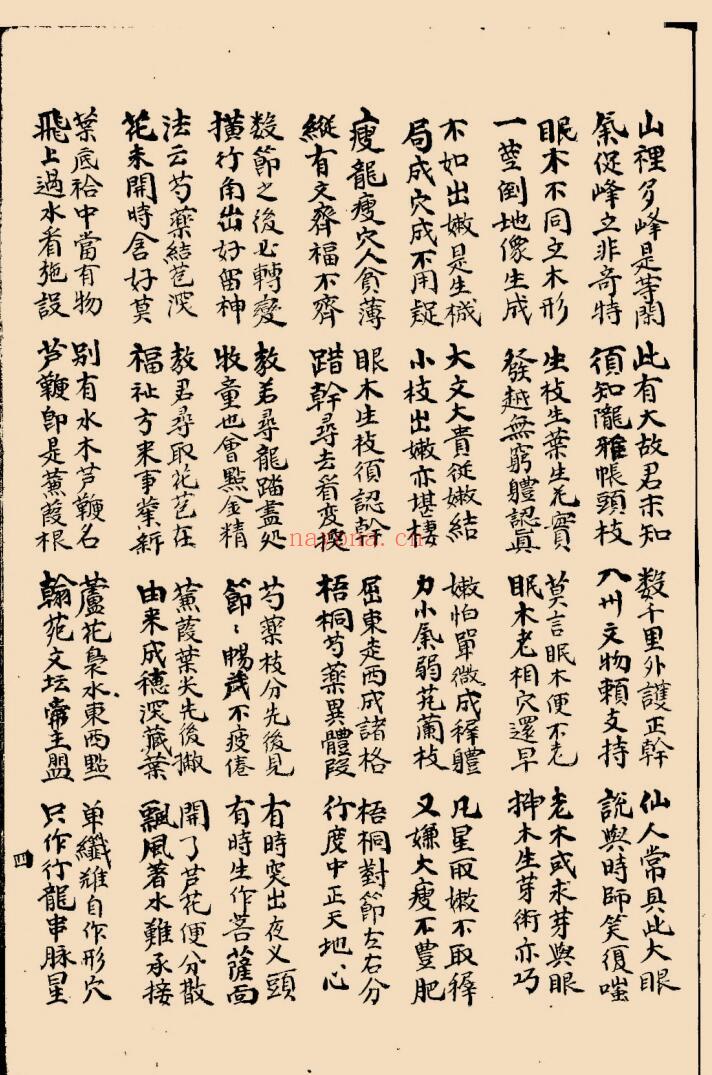 山裡多峰是等閑
氣促峰立非奇特
此有大故君未知
須知隴雅帳頭枝
数千里外護正幹
八州文物賴支持
仙人常具此大眼
説與時師笑復嗤
眠木不同立木形
一莖倒地像生成
生枝生葉生花實
發越無窮體認真
莫言眠木便不老
眠木老相穴還早
老木或求芽與眼
抻木生芽術亦巧
不如出嫩是生機
局成穴成不用疑
大文大貴從嫩結
小枝出嫩亦堪棲
嫩怕單微成稺體
力小氣弱芄蘭枝
凡星取嫩不取稺
又嫌大瘦不豊肥
瘦龍瘦穴人貧薄
縱有文齊福不齊
眼木生枝須認幹
踏幹尋去看变换
屈東走西成諸格
梧桐芍藥異體段
梧桐對節左右分
行度中正天地心
数節之後必轉變
横行角出好留神
教君尋龍踏盡処
牧童也會點金精
芍藥枝分先後見
節〻暢茂不疲倦
有時突出夜叉頭
有時生作菩薩面
法云芍藥結苞深
花未開時含好莫
教君尋取花苞在
福祉方来事業新
蒹葭葉尖先後撒
由来成穗深藏葉
開了芦花便分散
飄風著水難承接
葉底袷中當有物
飛上過水看施設
别有水木芦鞭名
芦鞭即是蒹葭根
蘆花裊水東西點
翰苑文坛帝王盟
单纖雖自作形穴
只作行龍串脉星
四
nayona.cn